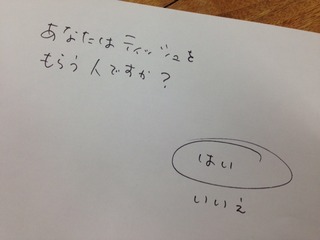 あなたはティッシュを
もらう人ですか?
はい
いいえ